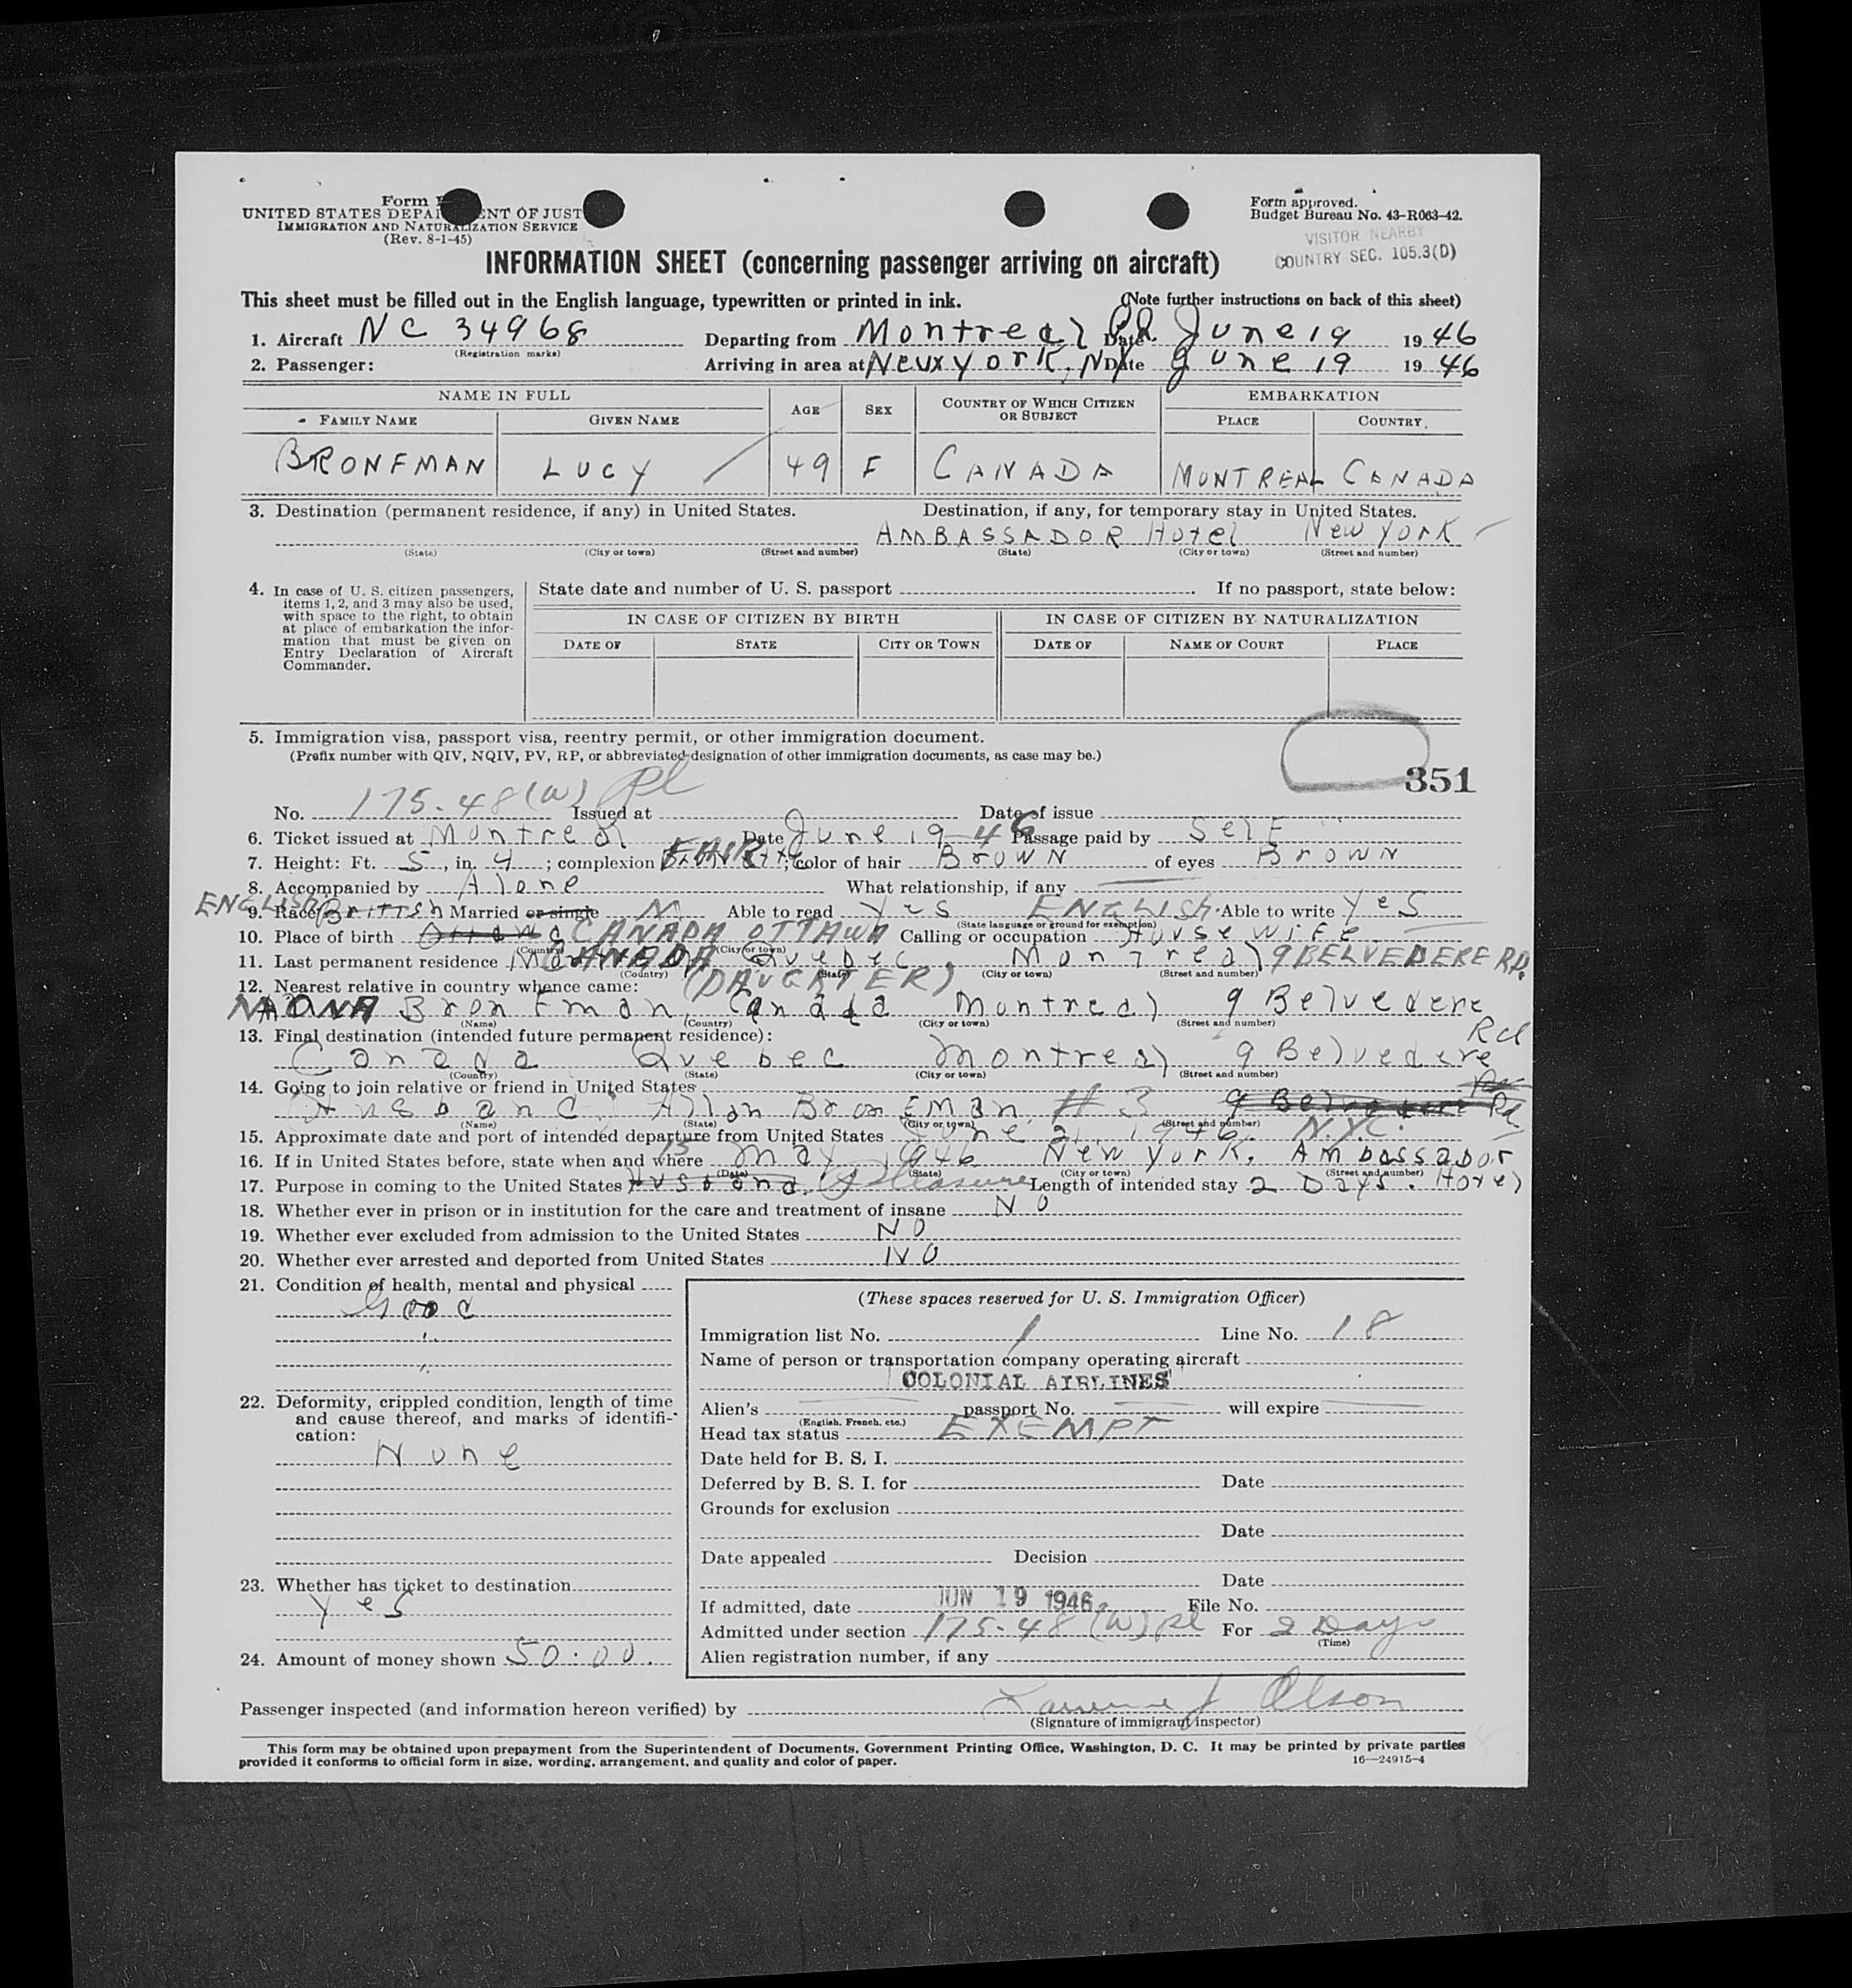 Form
UNITED STATES DEPA ENT OF JUST
IMMIGRATION AND NATURALIZATION SERVICE
(Rev. 8-1-45)
Form approved.
Budget Bureau No. 43-R063-42.
VISITOR NEARBY
COUNTRY SEC. 105.3(D)
INFORMATION SHEET (concerning passenger arriving on aircraft)
This sheet must be filled out in the English language, typewritten or printed in ink. (Note further instructions on back of this sheet)
1. Aircraft NC 34968 Departing from Montreal Date June 19 1946
(Registration marks)
2. Passenger: Arriving in area at New York, NY Date June 19 1946
NAME IN FULL AGE SEX COUNTRY OF WHICH CITIZEN OR SUBJECT EMBARKATION
FAMILY NAME GIVEN NAME PLACE COUNTRY
BRONFMAN LUCY 49 F CANADA MONTREAL CANADA
3. Destination (permanent residence, if any) in United States. Destination, if any, for temporary stay in United States.
AMBASSADOR Hotel New York
(State) (City or town) (Street and number) (State) (City or town) (Street and number)
4. In case of U. S. citizen passengers, items 1, 2, and 3 may also be used, with space to the right, to obtain at place of embarkation the information that must be given on Entry Declaration of Aircraft Commander.
State date and number of U. S. passport . If no passport, state below:
IN CASE OF CITIZEN BY BIRTH IN CASE OF CITIZEN BY NATURALIZATION
DATE OF STATE CITY OR TOWN DATE OF NAME OF COURT PLACE
5. Immigration visa, passport visa, reentry permit, or other immigration document.
(Prefix number with QIV, NQIV, PV, RP, or abbreviated designation of other immigration documents, as case may be.)
351
No. 175.48(a) Pl Issued at Date of issue
6. Ticket issued at Montreal Date June 19 46 Passage paid by Self
7. Height: Ft. 5, in. 4; complexion FAIR; color of hair BROWN of eyes BROWN
8. Accompanied by Alone What relationship, if any
ENGLISH
9. Race British Married or single M Able to read Yes ENGLISH Able to write Yes
(State language or ground for exemption)
10. Place of birth CANADA OTTAWA Calling or occupation Housewife
(Country) (City or town)
11. Last permanent residence CANADA Quebec Montreal 9 BELVEDERE RD.
(Country) (State) (City or town) (Street and number)
12. Nearest relative in country whence came: (DAUGHTER)
MONA Bronfman, Canada Montreal 9 Belvedere
(Name) (Country) (City or town) (Street and number)
Rd
13. Final destination (intended future permanent residence):
Canada Quebec Montreal 9 Belvedere
(Country) (State) (City or town) (Street and number)
14. Going to join relative or friend in United States
Husband, Allan Bronfman # 3 9 Belvedere Rd
(Name) (State) (City or town) (Street and number)
15. Approximate date and port of intended departure from United States June 21, 1946. N.Y.C.
16. If in United States before, state when and where 15 May 1946 New York, Ambassador
(Date) (State) (City or town) (Street and number)
17. Purpose in coming to the United States Husband. Pleasure Length of intended stay 2 Days. Hotel
18. Whether ever in prison or in institution for the care and treatment of insane NO
19. Whether ever excluded from admission to the United States NO
20. Whether ever arrested and deported from United States NO
21. Condition of health, mental and physical
Good
22. Deformity, crippled condition, length of time and cause thereof, and marks of identification:
None
23. Whether has ticket to destination
Yes
24. Amount of money shown 50:00.
(These spaces reserved for U. S. Immigration Officer)
Immigration list No. 1 Line No. 18
Name of person or transportation company operating aircraft
COLONIAL AIRLINES
Alien's passport No. will expire
(English, French, etc.)
Head tax status EXEMPT
Date held for B. S. I.
Deferred by B. S. I. for Date
Grounds for exclusion
Date
Date appealed Decision
Date
If admitted, date JUN 19 1946 File No.
Admitted under section 175.48(a) pl For 2 Days
(Time)
Alien registration number, if any
Passenger inspected (and information hereon verified) by Olson
(Signature of immigrant inspector)
This form may be obtained upon prepayment from the Superintendent of Documents, Government Printing Office, Washington, D. C. It may be printed by private parties
provided it conforms to official form in size, wording, arrangement, and quality and color of paper.
16—24915-4